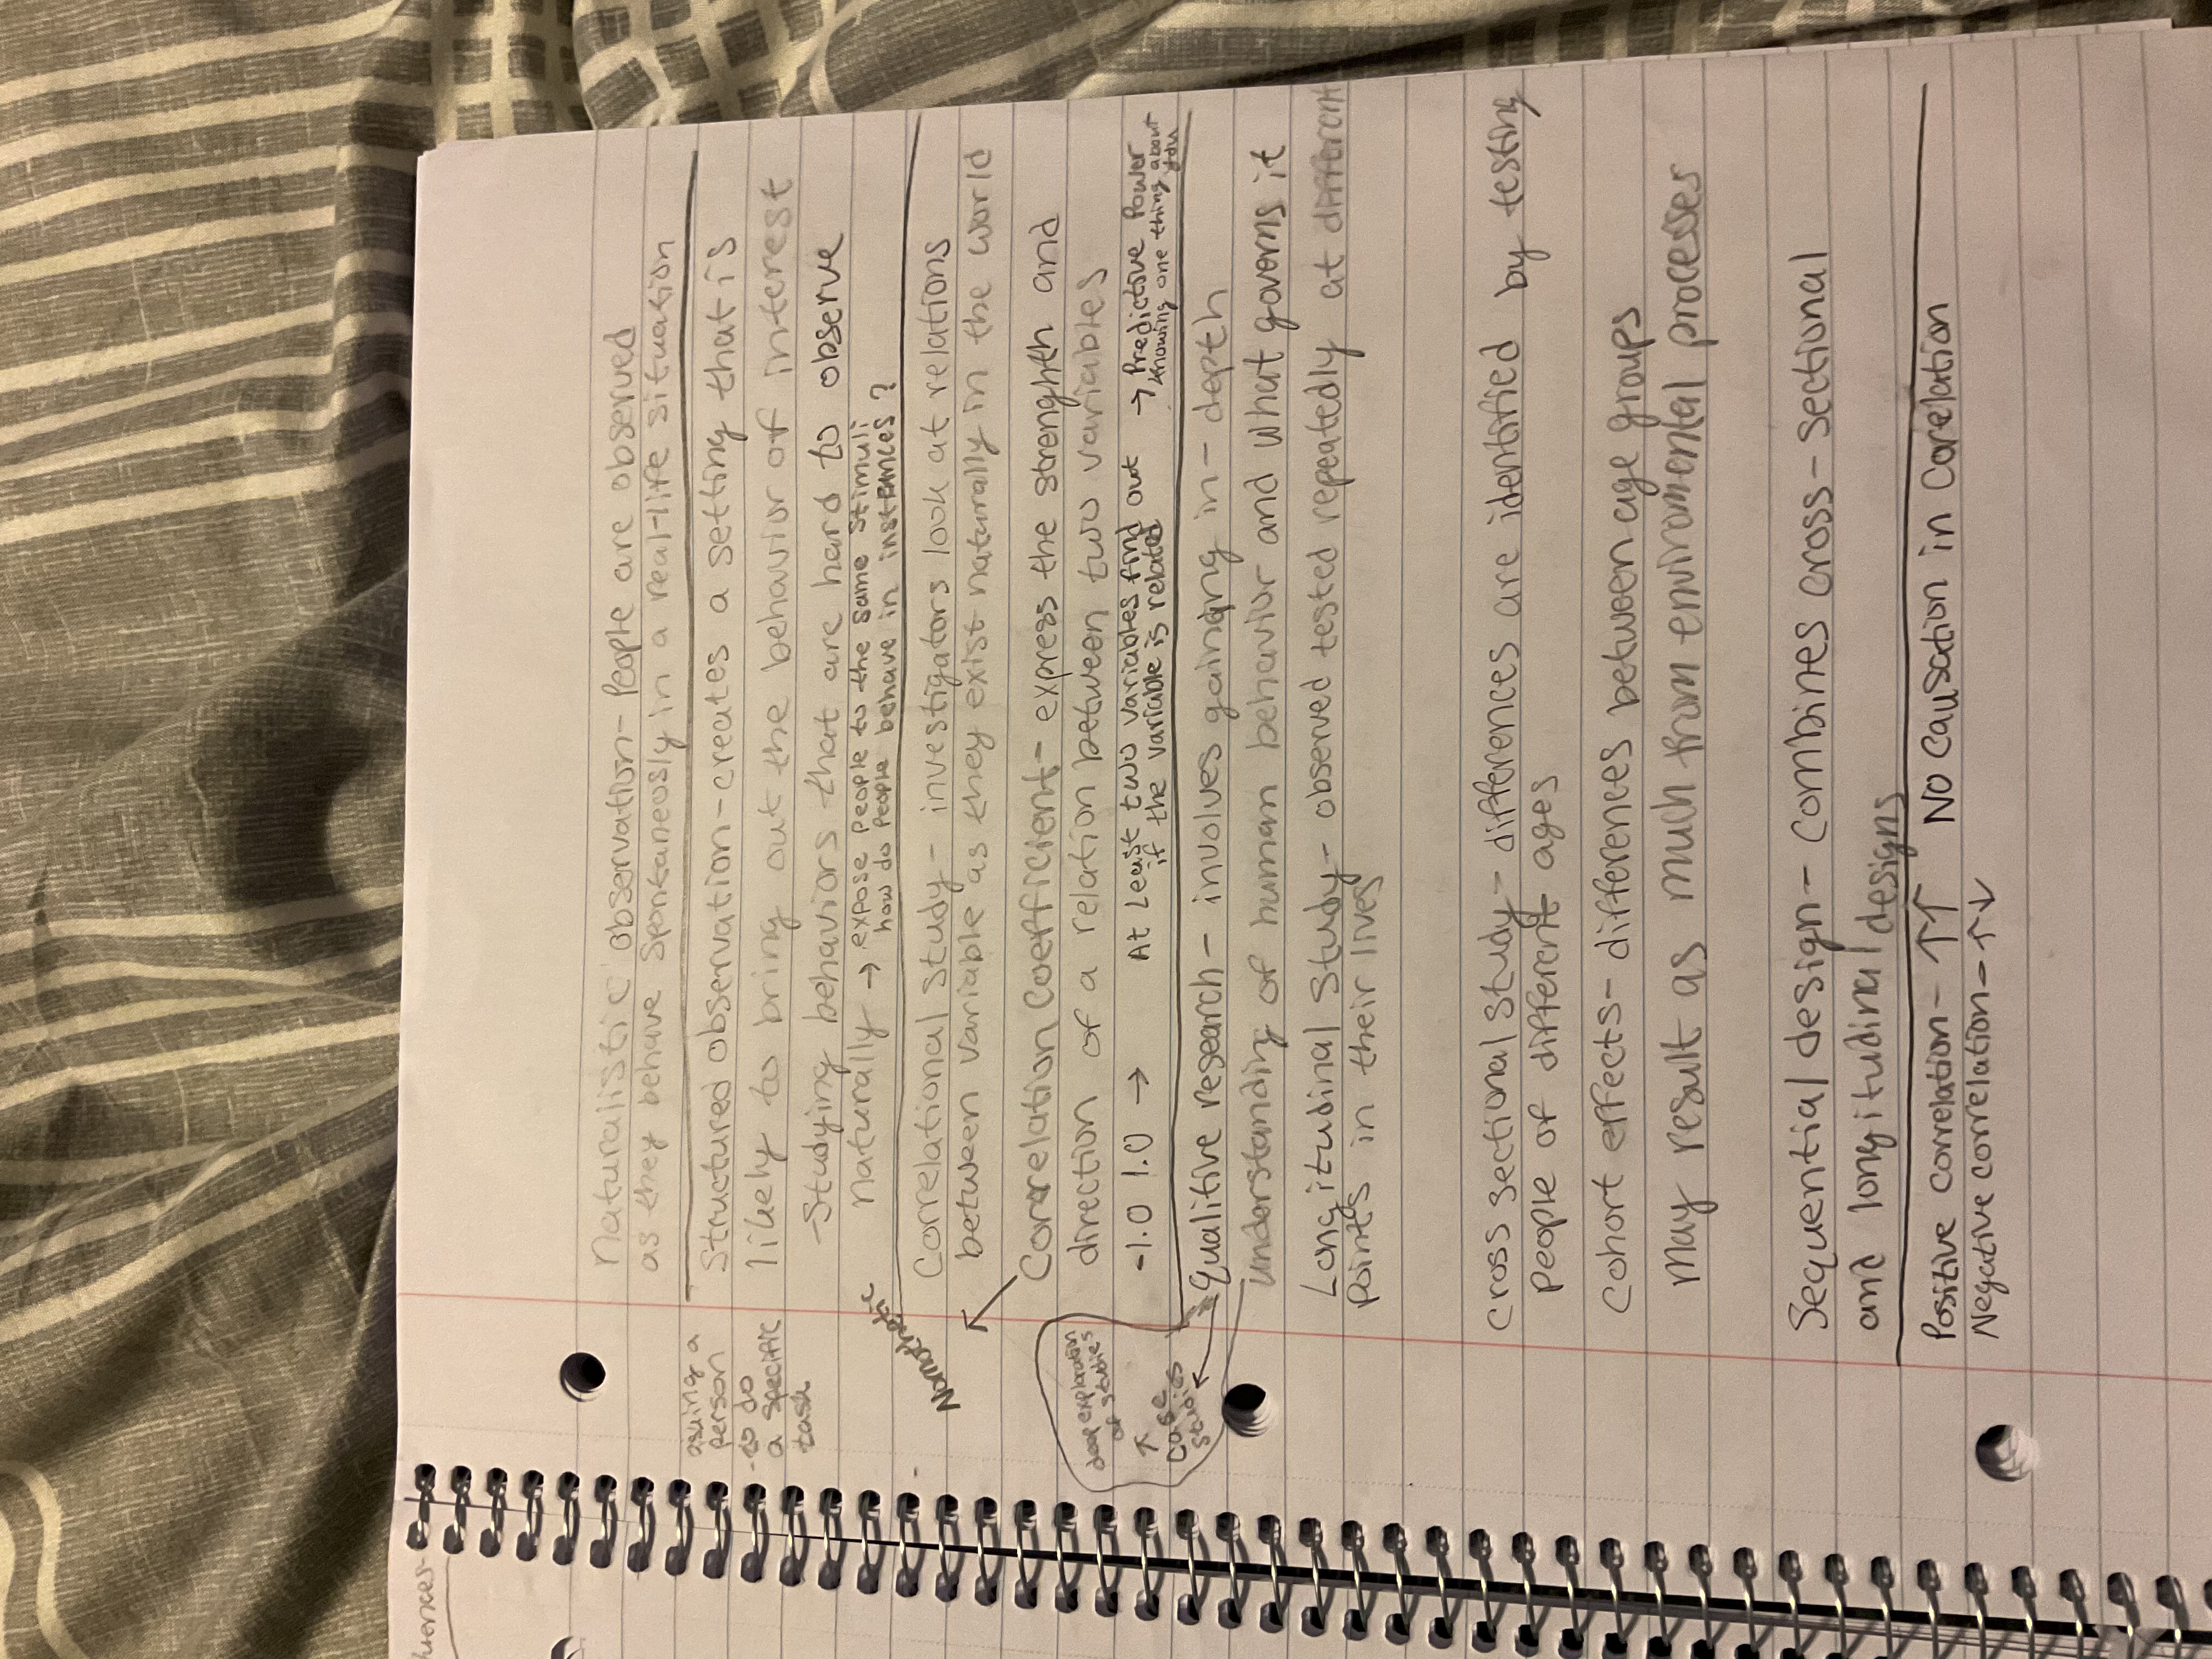 Naturalistic observation- People are observed
as they behave spontaneously in a real-life situation
asuing a
person
-to do
a specific
task
Structured observation-creates a setting that is
likely to bring out the behavior of interest
-Studying behaviors that are hard to observe
naturally → expose people to the same stimuli
how do people behave in instances?
Nomothetic
Correlational study- investigators look at relations
between variable as they exist naturally in the world
Correlation Coefficient- express the strenghth and
direction of a relation between two variables
-1.0 1.0 → At Least two variables find out → Predictive Power
if the variable is related knowing one thing about
you
deep exploration
of studies
↑
case
studies
Qualitive research- involves gaining in-depth
understanding of human behavior and what governs it
Longitudinal Study- observed tested repeatedly at different
points in their lives
Cross sectional study- differences are identified by testing
people of different ages
Cohort effects- differences between age groups
may result as much from enviromental processes
Sequential design- combines cross-sectional
and longitudinal designs
Positive correlation- ↑↑ No Causation in Corelation
Negative correlation- ↑↓